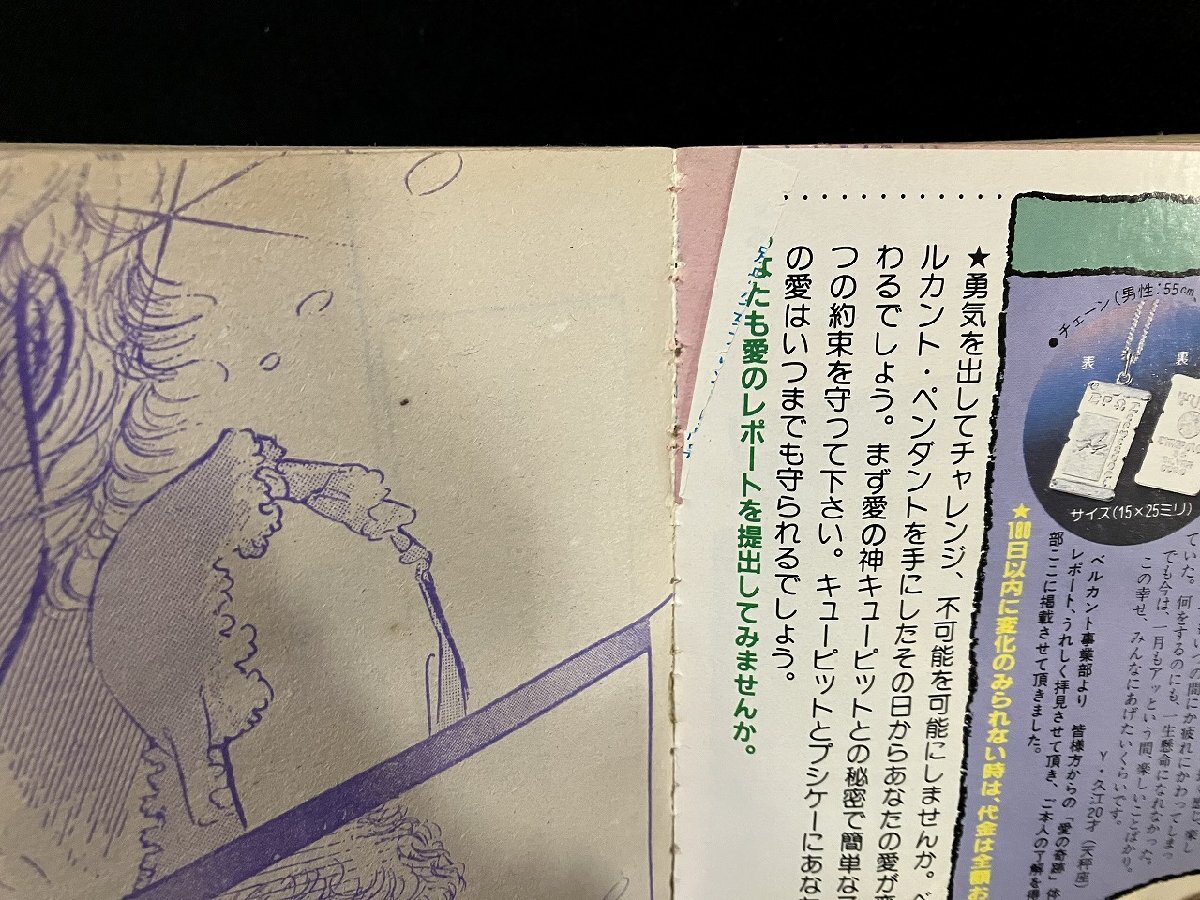 ●チェーン(男性:55cm
表
裏
サイズ(15×25ミリ)
ていた。何をするのにも、一生懸命になれなかった。
でも今は、一月もアッという間、楽しいことばかり。
この幸せ、みんなにあげたいくらいです。
Y・久江20才(天秤座)
ベルカント事業部より 皆様方からの「愛の奇跡」体
レポート、うれしく拝見させて頂き、ご本人の了解を得
部ここに掲載させて頂きました。
★180日以内に変化のみられない時は、代金は全額お
★勇気を出してチャレンジ、不可能を可能にしませんか。ベ
ルカント・ペンダントを手にしたその日からあなたの愛が変
わるでしょう。まず愛の神キューピットとの秘密で簡単な
つの約束を守って下さい。キューピットとプシケーにあな
の愛はいつまでも守られるでしょう。
なたも愛のレポートを提出してみませんか。